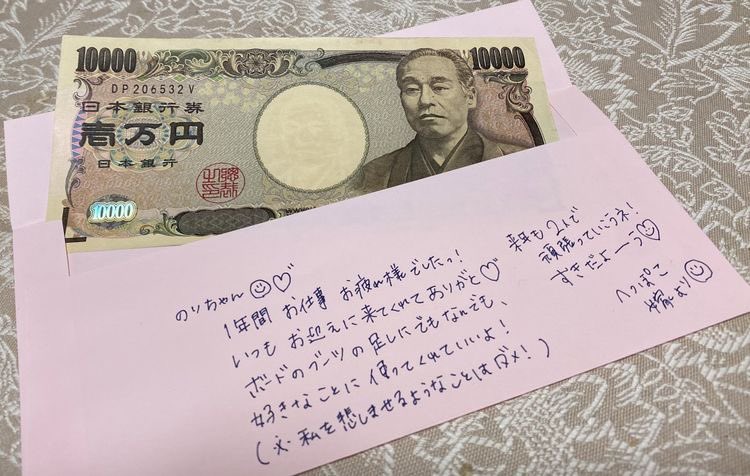 10000
10000
DP206532V
日本銀行券
壱万円
日本銀行
10000
のりちゃん
1年間 お仕事 お疲れ様でしたっ!
いつも お迎えに来てくれてありがと♡
ボードのブーツの足しにでもなんでも、
好きなことに 使ってくれていいよ!
(※私を悲しませるようなことはダメ!)
来年も2人で
頑張っていこうネ!
すきだよーう♡
へっぽこ
嫁より